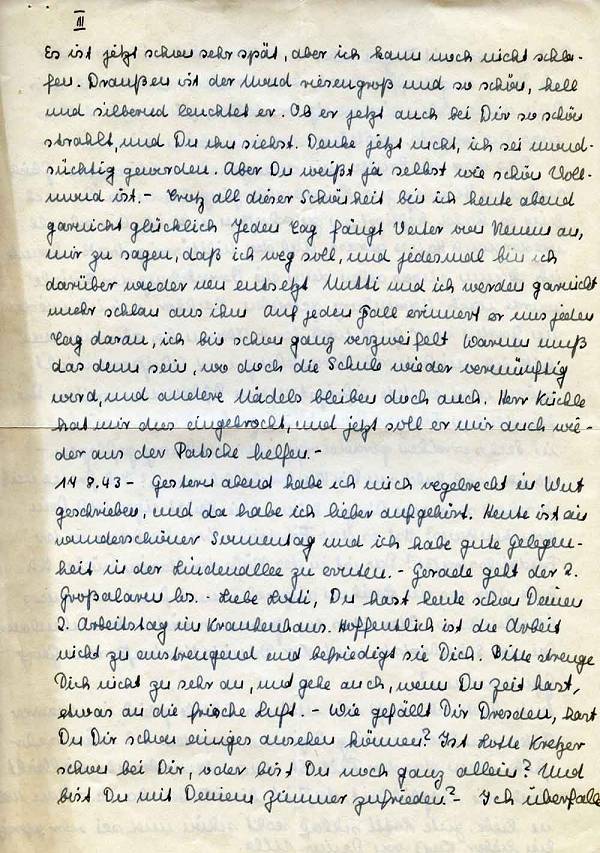 III
Es ist jetzt schon sehr spät, aber ich kann noch nicht schla-
fen. Draußen ist der Mond riesengroß und so schön, hell
und silbernd leuchtet er. Ob er jetzt auch bei Dir so schön
strahlt, und Du ihn siehst. Denke jetzt nicht, ich sei mond-
süchtig geworden. Aber Du weißt ja selbst wie schön Voll-
mond ist. - Trotz all dieser Schönheit bin ich heute abend
garnicht glücklich Jeden Tag fängt Vater von Neuem an,
mir zu sagen, daß ich weg soll, und jedesmal bin ich
darüber wieder neu entsetzt Mutti und ich werden garnicht
mehr schlau aus ihm Auf jeden Fall erinnert er uns jeden
Tag daran, ich bin schon ganz verzweifelt Warum muß
das denn sein, wo doch die Schule wieder vernünftig
wird, und andere Mädels bleiben doch auch. Herr Küchle
hat mir dies eingebrockt, und jetzt soll er mir auch wie-
der aus der Patsche helfen. -
14 8.43 - Gestern abend habe ich mich regelrecht in Wut
geschrieben, und da habe ich lieber aufgehört. Heute ist ein
wunderschöner Sonnentag und ich habe gute Gelegen-
heit in der Lindenallee zu ernten. - Gerade geht der 2.
Großalarm los. - Liebe Lotti, Du hast heute schon Deinen
2. Arbeitstag im Krankenhaus. Hoffentlich ist die Arbeit
nicht zu anstrengend und befriedigt sie Dich. Bitte strenge
Dich nicht zu sehr an, und gehe auch, wenn Du Zeit hast,
etwas an die frische Luft. - Wie gefällt Dir Dresden, hast
Du Dir schon einiges ansehen können? Ist Lotte Kretzer
schon bei Dir, oder bist Du noch ganz allein? Und
bist Du mit Deinem Zimmer zufrieden? - Ich überfalle